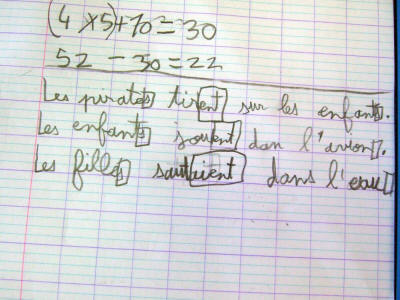 (4 x 5) + 10 = 30
52 - 30 = 22
Les pirates tirent sur les enfants.
Les enfants jouent dan l'avion.
Les filles sautuient dans l'eau